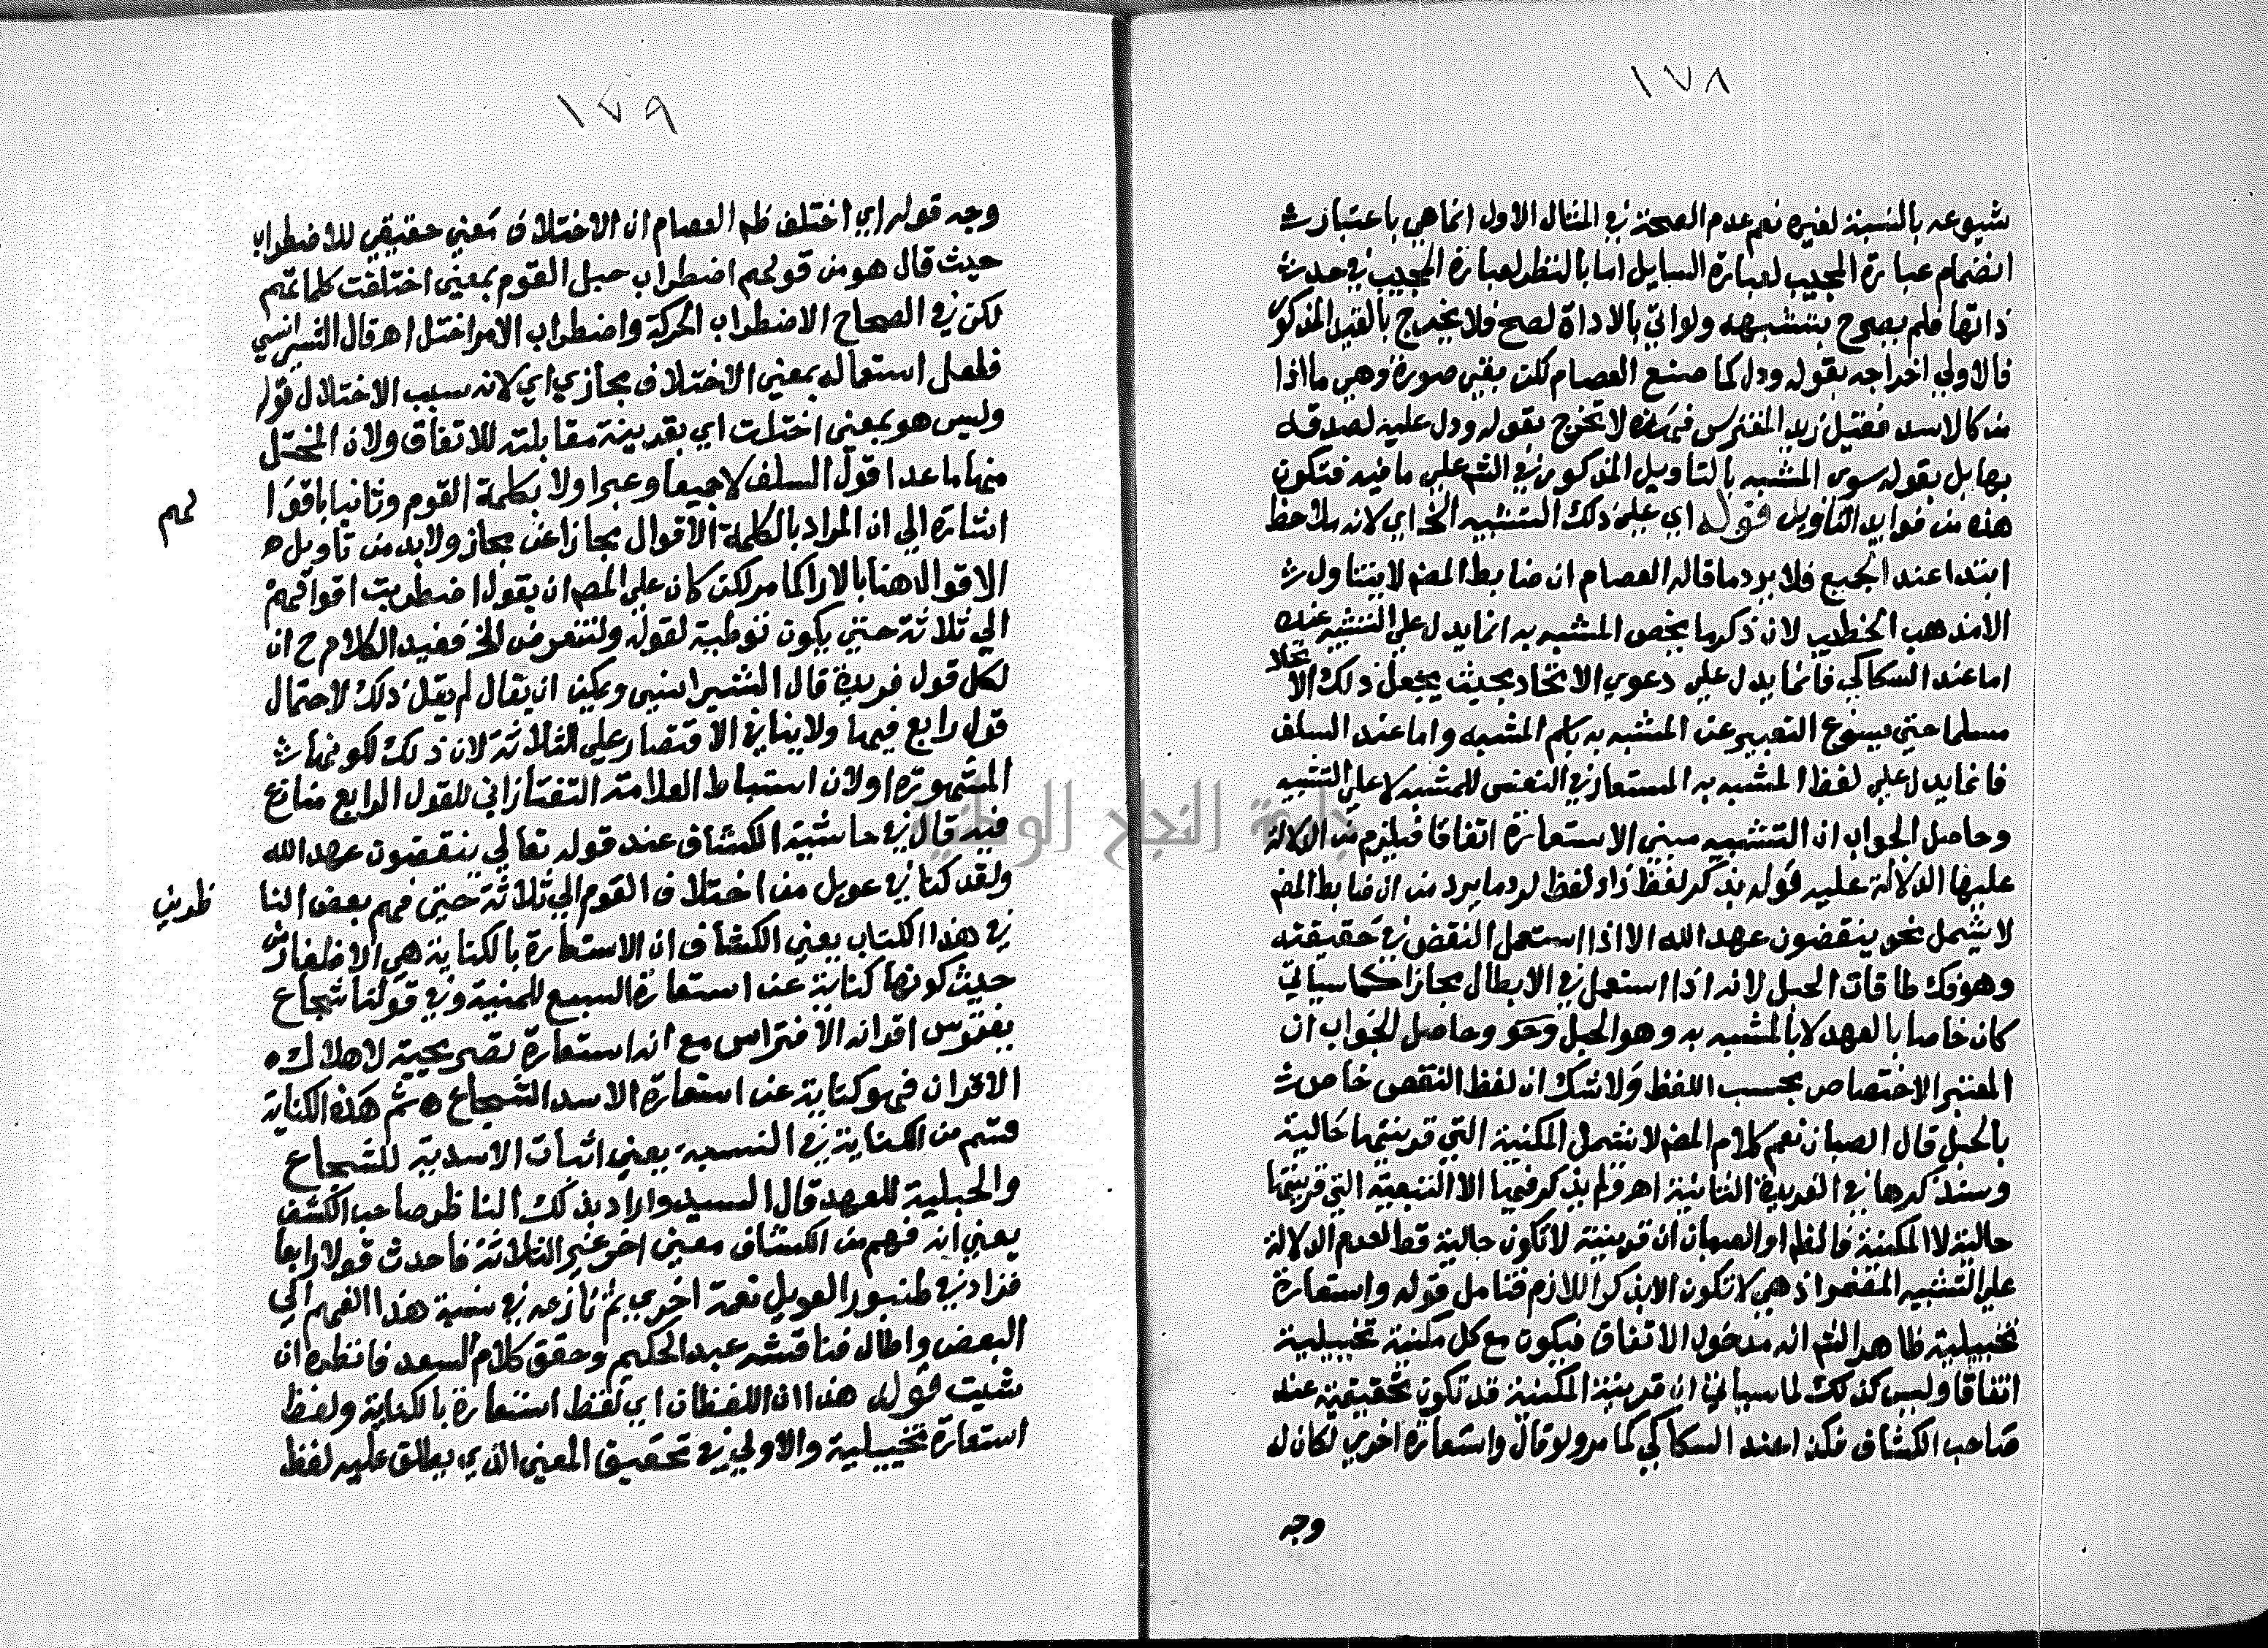 ١٧٨
شيوعه بالنسبة لغيره نعم عدم الصحة في المثال الاول انما هي باعتبار
انضمام عبارة المجيب لعبارة السايل اما بالنظر لعبارة المجيب في حد
ذاتها فلم يصرح بتشبيه ولو اتي بالاداة لصح فلا يخرج بالقيد المذكور
فالاولي اخراجه بقوله ودل كما صنع العصام لكن بقي صورة وهي ما اذا
من كالاسد فقيل زيد المفترس فهذه لا تخرج بقوله ودل عليه لصدقه
بها بل بقوله سوى المشبه بالتاويل المذكور في الشم علي ما فيه فتكون
هذه من فوايد التاويل قوله اي علي ذلك التشبيه الخ اي لانه يلاحظ
ابتدا عند الجميع فلا يرد ما قاله العصام ان ضابط المضم لا يتناول
الا مذهب الخطيب لان ذكر ما يخص المشبه به انما يدل علي التشبيه عنده
اما عند السكاكي فانما يدل علي دعوي الاتحاد بحيث يجعل ذلك الاتحاد
مسلما حتي يسوغ التعبير عن المشبه به باسم المشبه واما عند السلف
فانما يدل علي لفظ المشبه به المستعار في النفس للمشبه لا علي التشبيه
وحاصل الجواب ان التشبيه مبني الاستعارة اتفاقا فيلزم من الدلالة
عليها الدلالة عليه قوله بذكر لفظ زاد لفظ لرد ما يرد من ان ضابط المضم
لا يشمل نحو ينقضون عهد الله الا اذا استعمل النقض في حقيقته
وهو فك طاقات الحبل لانه اذا استعمل في الابطال مجازا كما سياتي
كان خاصا بالعهد لا بالمشبه به وهو الحبل ونحو وحاصل الجواب ان
المعتبر الاختصاص بحسب اللفظ ولا شك ان لفظ النقض خاص
بالحبل قال الصبان نعم كلام المضم لا يشمل المكنية التي قرينتها حالية
وسنذكرها في الفريدة الثانية اهـ ولم يذكر فيها الا التبعية التي قرينتها
حالية لا المكنية فانظم او الصبان ان قرينتة لا تكون حالية قط لعدم الدلالة
علي التشبيه المضمر اذ هي لا تكون الا بذكر اللازم فتامل قوله واستعارة
تخييلية ظاهر الشم انه مدخول الاتفاق فيكون مع كل مكنية تخييلية
اتفاقا وليس كذلك لما سياتي ان قرينة المكنية قد تكون تحقيقية عند
صاحب الكشاف فكذا عند السكاكي كما مر ولو قال واستعارة اخري لكان له
وجه
١٧٩
وجه قوله اي اختلف ظم العصام ان الاختلاف معني حقيقي للاضطراب
حيث قال هو من قولهم اضطراب حبل القوم بمعني اختلفت كلماتهم
لكن في الصحاح الاضطراب الحركة واضطراب الامر اختل اهـ قال الشيرانسي
فلعل استعماله بمعني الاختلاف مجازي اي لانه سبب الاختلال قوله
وليس هو بمعني اختلت اي بقرينة مقابلته للاتفاق ولان المختل
منها ما عدا قول السلف لا جميعا وعبر اولا بكلمة القوم وثانيا باقوا
لهم
اشارة الي ان المراد بالكلمة الاقوال مجازا عن مجاز ولا بد من تاويل
الاقوال هنا بالارا كما مر لكن كان علي المصم ان يقول اضطربت اقوالهم
الي ثلاثة حتي يكون توطية لقوله ولنتعرض الخ ففيد الكلام ح ان
لكل قول فريدة قال الشيرانسي ويمكن ان يقال لم يقل ذلك لاحتمال
قول رابع فيها ولا ينافي الاقتصار علي الثلاثة لان ذلك لكونها
المشهورة او لان استنباط العلامة التفتازاني للقول الرابع منازع
فيه قال في حاشية الكشاف عند قوله تعالي ينقضون عهد الله
ولقد كنا في عويل من اختلاف القوم الي ثلاثة حتي فهم بعض النا
ظرين
في هذا الكتاب يعني الكشاف ان الاستعارة بالكناية هي الاظفار من
حيث كونها كناية عن استعارة السبع للمنية وفي قولنا شجاع
يفترس اقرانه الافتراس مع انه استعارة تصريحية لاهلاك
الاقران فهو كناية عن استعارة الاسد الشجاع ثم هذه الكناية
قسم من الكناية في النسبة يعني اثبات الاسدية للشجاع
والحبلية للعهد قال السيد واراد بذلك الناظر صاحب الكشف
يعني انه فهم من الكشاف معني اخر غير الثلاثة فاحدث قولا رابعا
فزاد في طنبور العويل نغمة اخري ثم نازعه في نسبة هذا الفهم الي
البعض واطال فناقشه عبد الحكيم وحقق كلام السعد فانظره ان
شيت قوله هذا ان اللفظان اي لفظ استعارة بالكناية ولفظ
استعارة تخييلية والاولي في تحقيق المعني الذي يطلق عليه لفظ
جامعة النجاح الوطنية